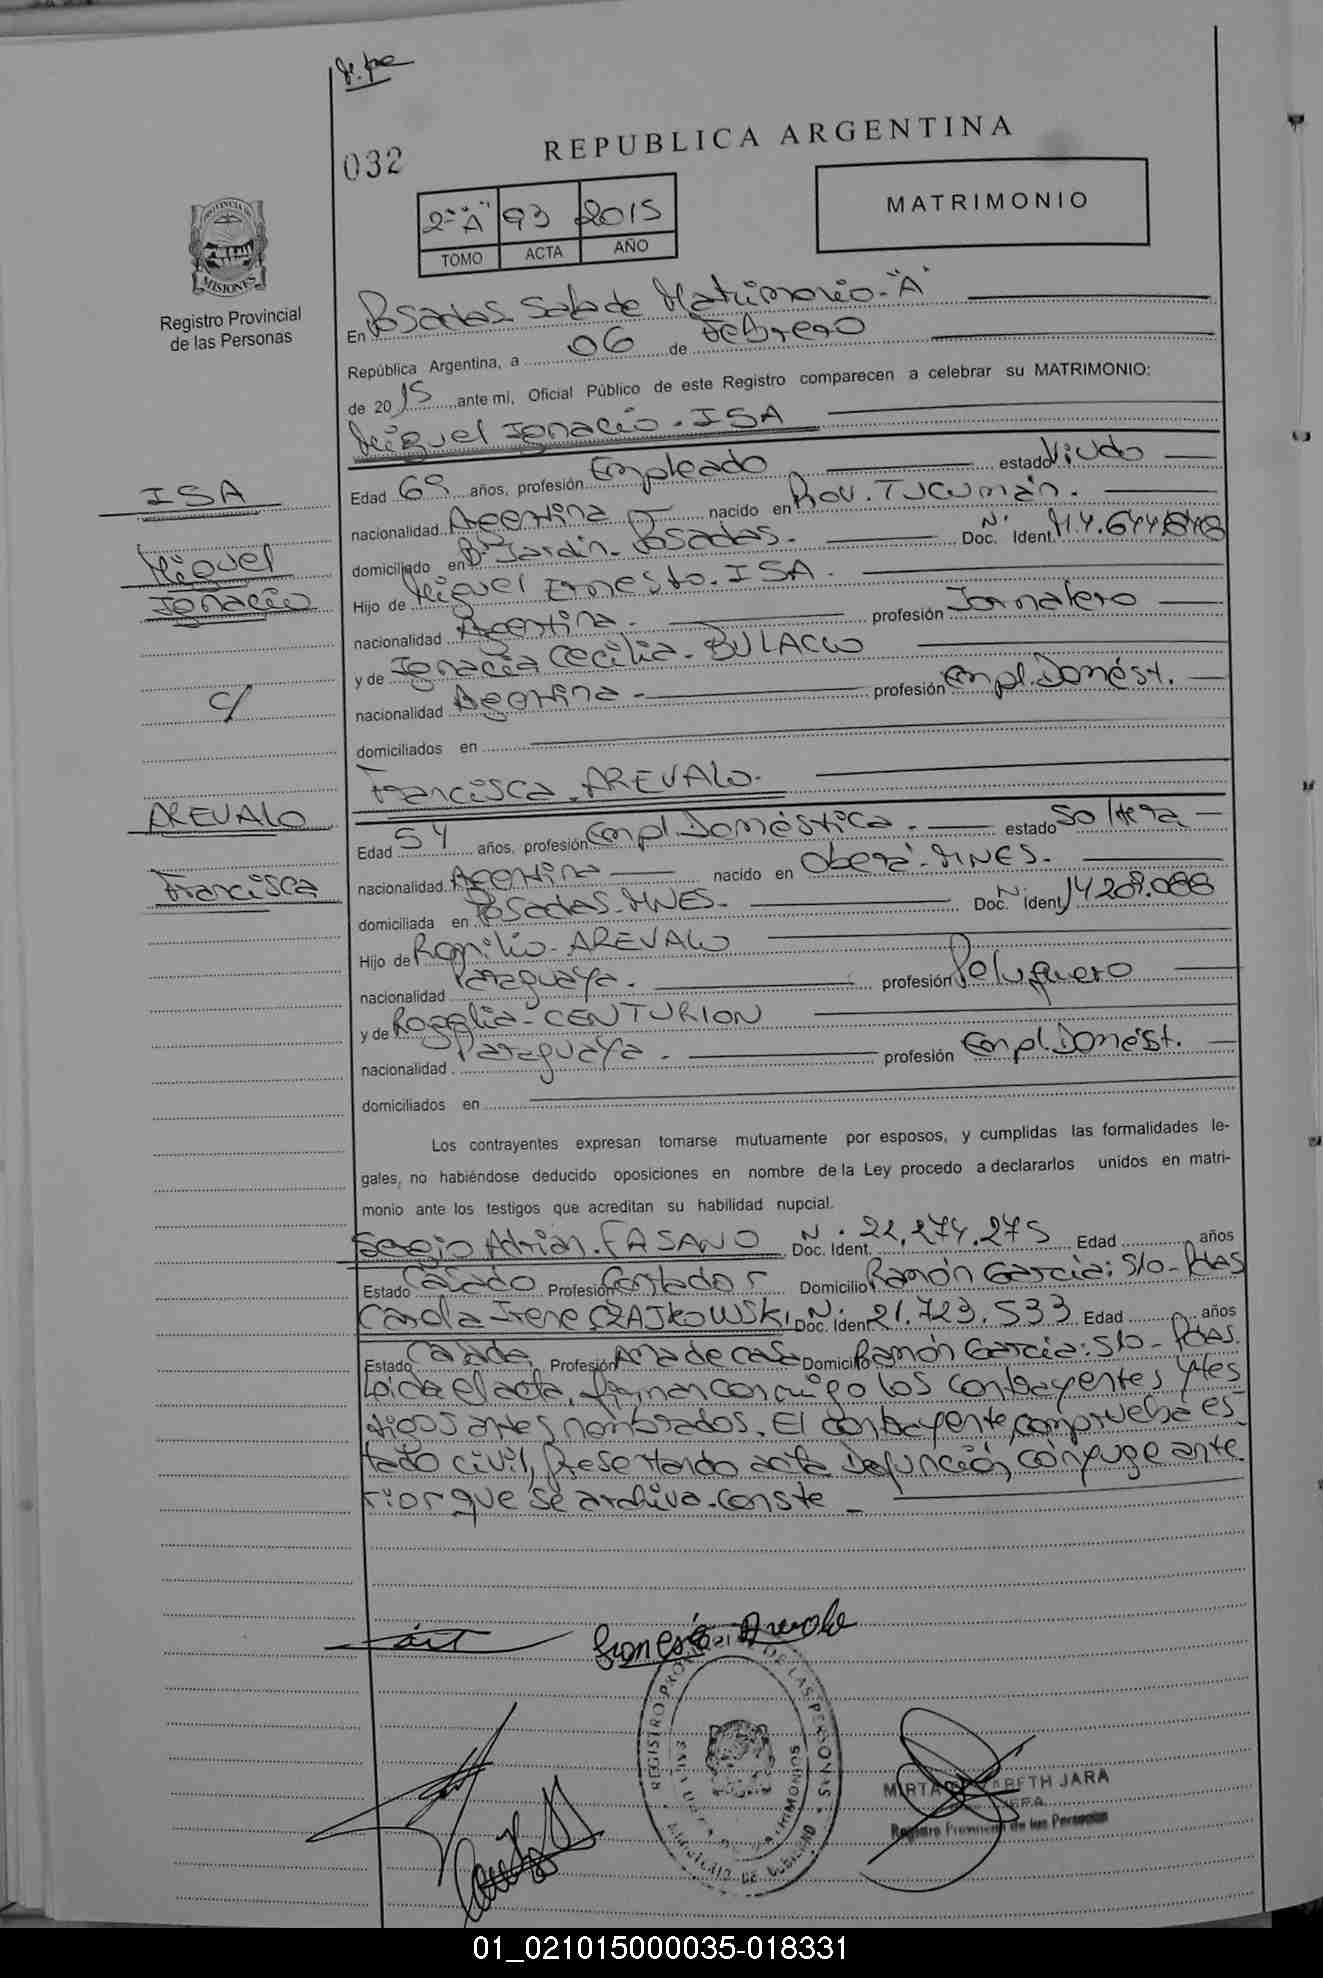 032
REPUBLICA ARGENTINA
2º "A" 93 2015
TOMO ACTA AÑO
MATRIMONIO
PROVINCIA DE
MISIONES
Registro Provincial
de las Personas
En Posadas Sala de Matrimonio-"A"
República Argentina, a 06 de Febrero
de 2015 ante mí, Oficial Público de este Registro comparecen a celebrar su MATRIMONIO:
Miguel Ignacio. ISA
Edad 69 años, profesión Empleado estado Viudo
nacionalidad Argentina nacido en Prov. Tucumán.
domiciliado en Bº Jardín. Posadas. Doc. Ident. Nº M.4.644.848
Hijo de Miguel Ernesto. ISA.
nacionalidad Argentina. profesión Jornalero
y de Ignacia Cecilia. BULACIO
nacionalidad Argentina profesión Empl. Domést.
domiciliados en
Francisca. AREVALO.
Edad 54 años, profesión Empl. Doméstica. estado Soltera
nacionalidad Argentina nacido en Oberá. MNES.
domiciliada en Posadas. MNES. Doc. Ident. Nº 14.209.088
Hijo de Romilio. AREVALO
nacionalidad Paraguaya. profesión Peluquero
y de Rogelia. CENTURION
nacionalidad Paraguaya. profesión Empl. Domést.
domiciliados en
ISA
Miguel
Ignacio
c/
AREVALO
Francisca
Los contrayentes expresan tomarse mutuamente por esposos, y cumplidas las formalidades le-
gales, no habiéndose deducido oposiciones en nombre de la Ley procedo a declararlos unidos en matri-
monio ante los testigos que acreditan su habilidad nupcial.
Sergio Adrián. FASANO Doc. Ident. Nº 22.274.275 Edad años
Estado Casado Profesión Contador Domicilio Ramón García: S/o - Pdas
Carola Irene CZAJKOWSKI Doc. Ident. Nº 21.723.533 Edad años
Estado Casada Profesión Ama de casa Domicilio Ramón García: S/o - Pdas.
Leída el acta, firman conmigo los contrayentes y tes
tigos antes nombrados. El contrayente, comprueba es
tado civil, presentando acta Defunción, cónyuge ante
rior que se archiva. Conste
Francisca Arevalo
REGISTRO PROVINCIAL DE LAS PERSONAS
MINISTERIO DE GOBIERNO
MATRIMONIOS
JARA
JEFA
Registro Provincial de las Personas
01_021015000035-018331